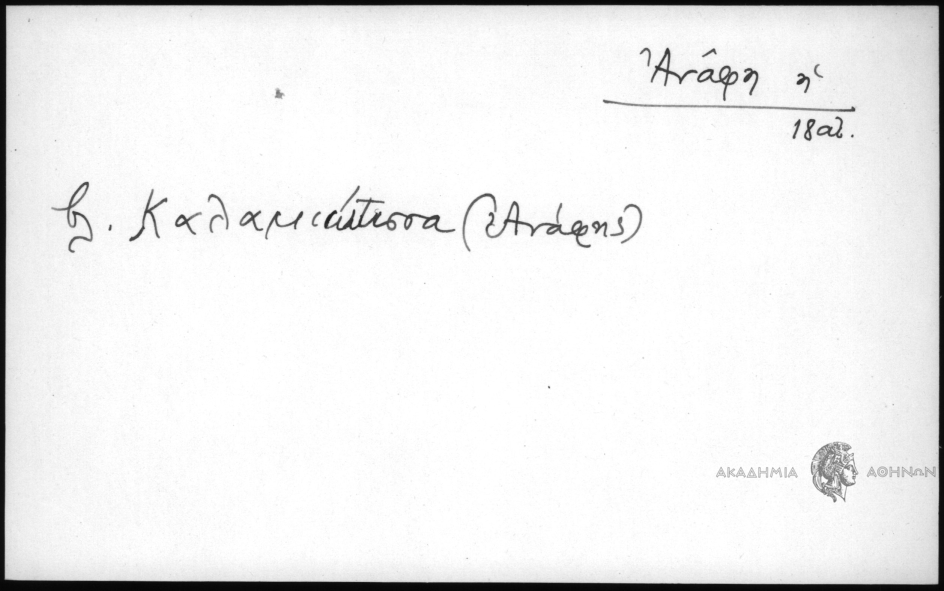 Ἀνάφη ἡ
18 αἰ.
βλ. Καλαμιώτισσα (Ἀνάφης)
ΑΚΑΔΗΜΙΑ ΑΘΗΝΩΝ